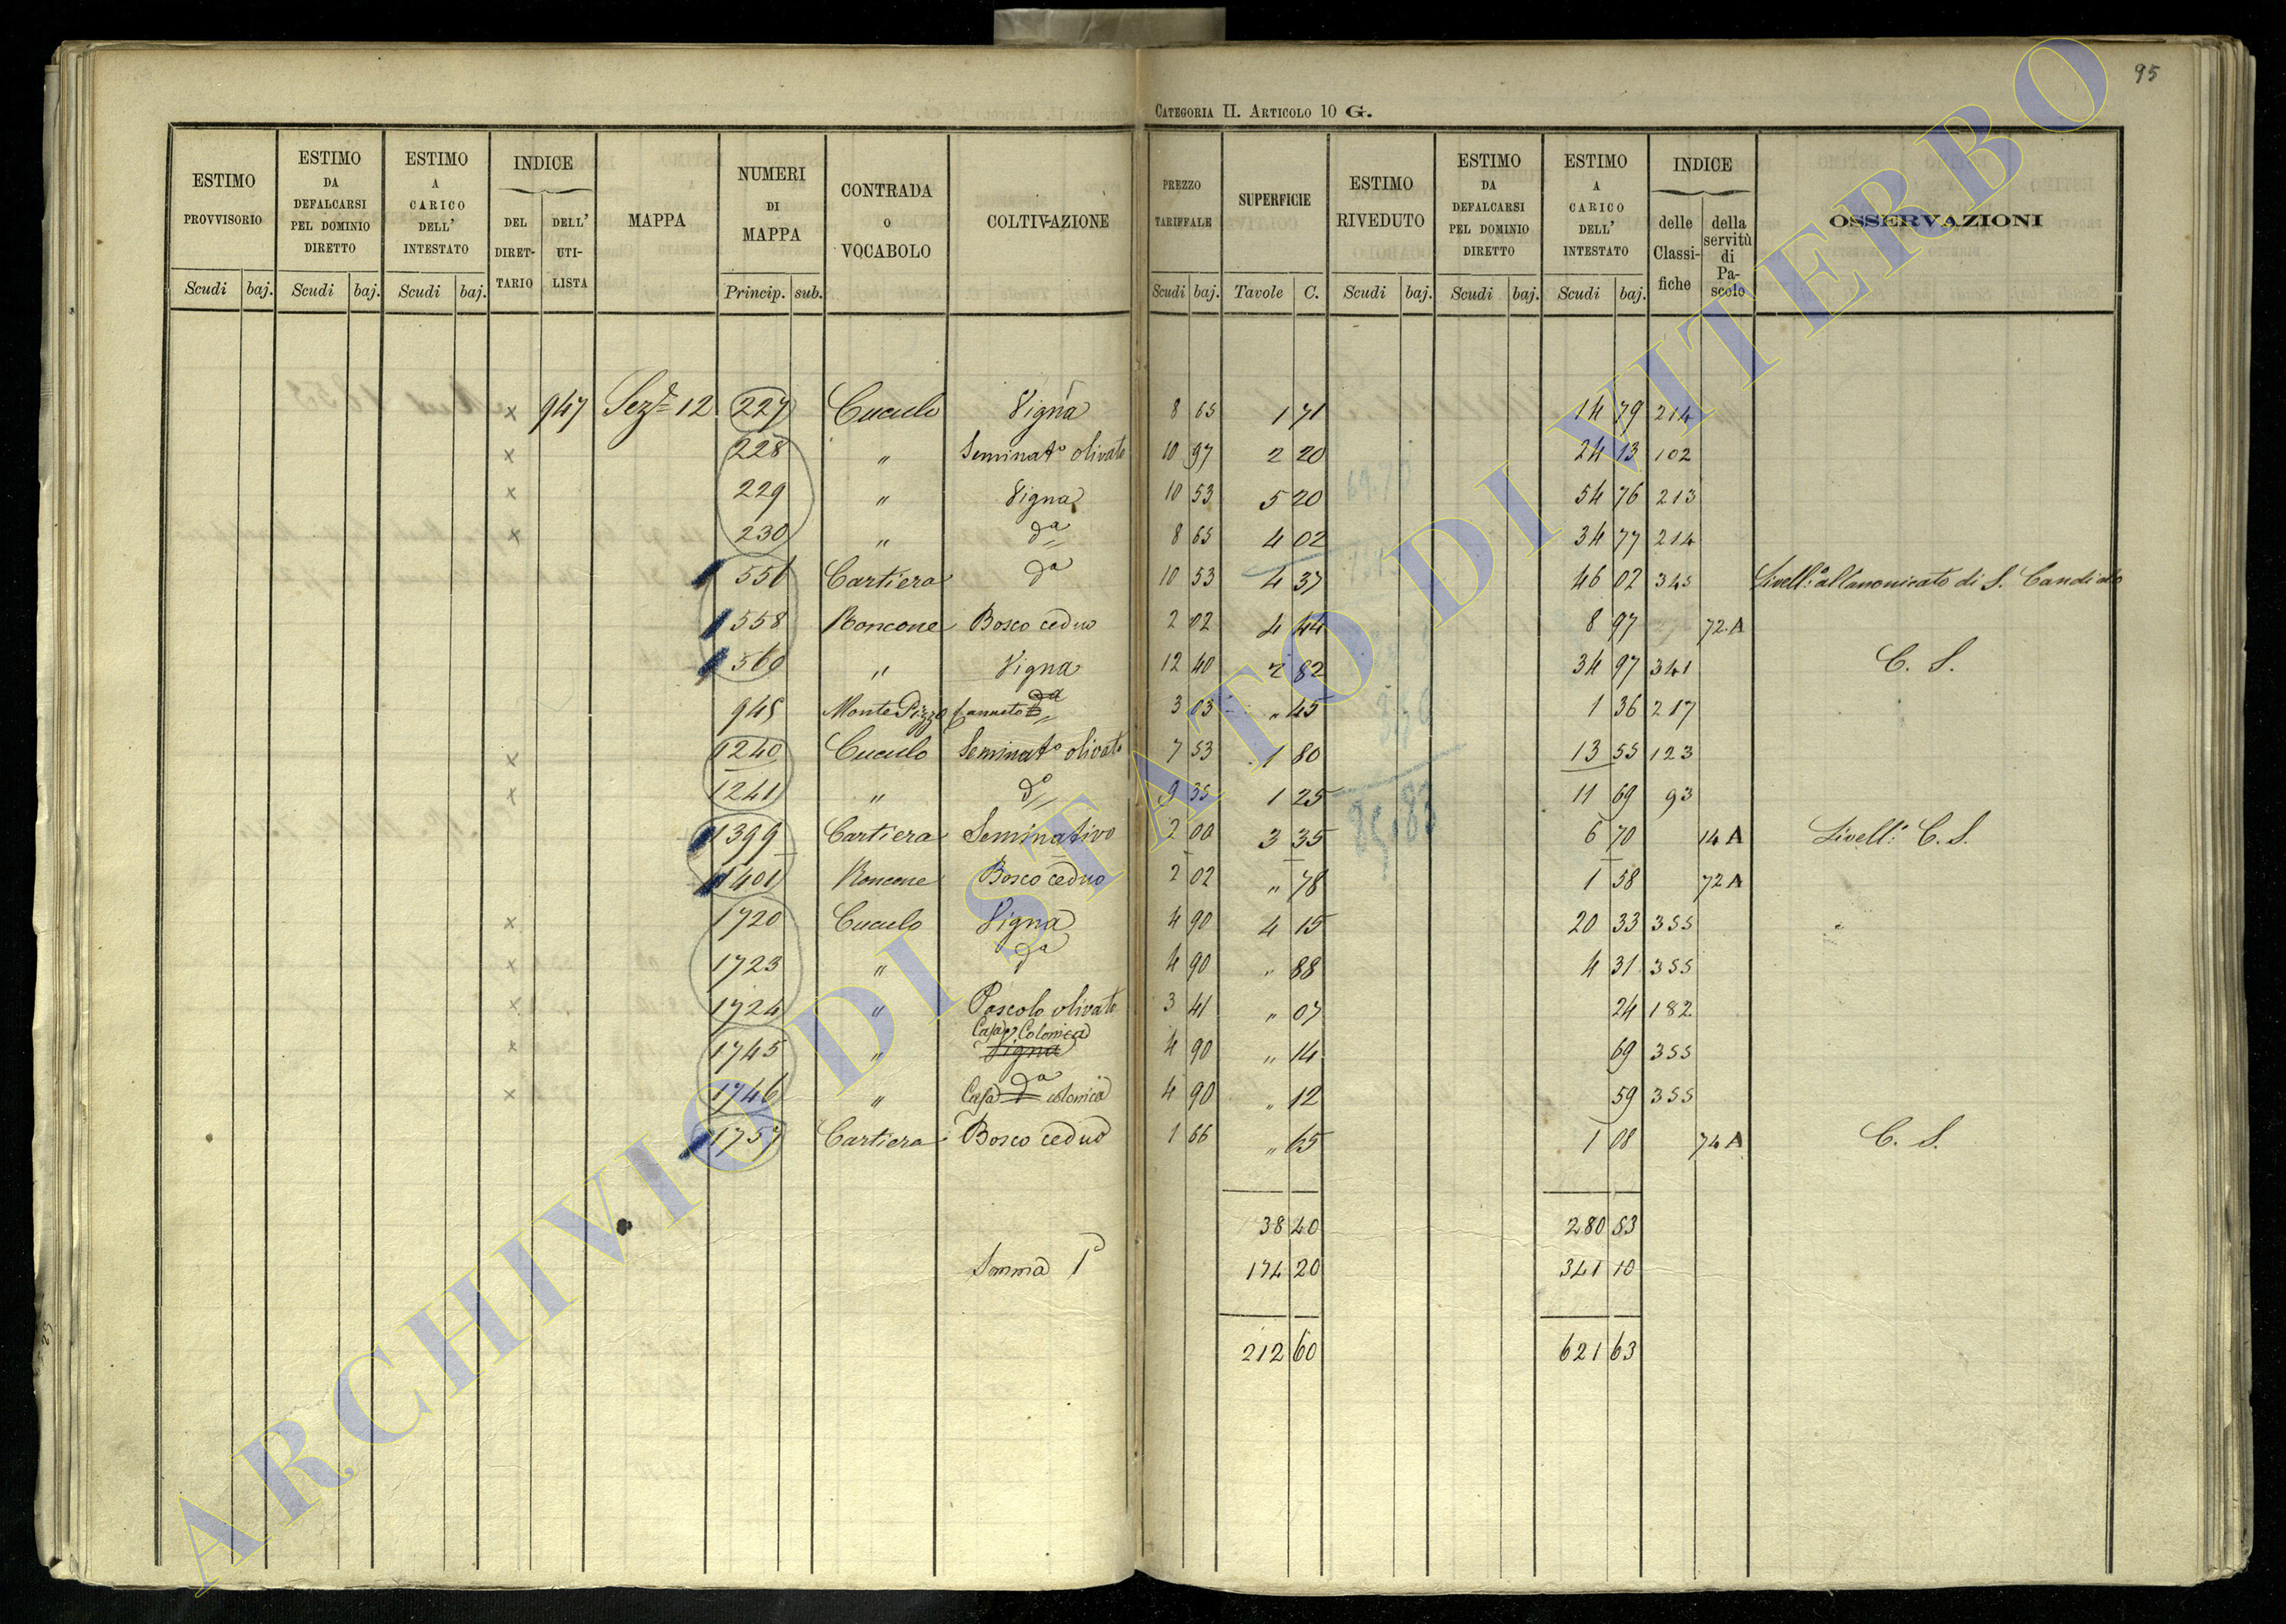 95
CATEGORIA II. ARTICOLO 10 G.
ESTIMO PROVVISORIO Scudi baj. ESTIMO DA DEFALCARSI PEL DOMINIO DIRETTO Scudi baj. ESTIMO A CARICO DELL' INTESTATO Scudi baj. INDICE DEL DIRETTARIO DELL' UTILISTA MAPPA NUMERI DI MAPPA Princip. sub. CONTRADA O VOCABOLO COLTIVAZIONE PREZZO TARIFFALE Scudi baj. SUPERFICIE Tavole C. ESTIMO RIVEDUTO Scudi baj. ESTIMO DA DEFALCARSI PEL DOMINIO DIRETTO Scudi baj. ESTIMO A CARICO DELL' INTESTATO Scudi baj. INDICE delle Classifiche della servitù di Pascolo OSSERVAZIONI
x 947 Sez.e 12 227 Cuculo Vigna 8 65 1 71 14 79 214
x 228 " Seminat.o olivato 10 97 2 20 24 13 102
x 229 " Vigna 10 53 5 20 54 76 213
x 230 " da 8 65 4 02 34 77 214
551 Cartiera da 10 53 4 37 46 02 345 Livell.o al Canonicato di S. Candido
558 Roncone Bosco ceduo 2 02 4 44 8 97 72 A
560 " Vigna 12 40 2 82 34 97 341 C. S.
945 Monte Pizzo Canneto da 3 03 " 45 1 36 217
x 1240 Cuculo Seminat.o olivato 7 53 1 80 13 55 123
x 1241 " do 9 35 1 25 11 69 93
1399 Cartiera Seminativo 2 00 3 35 6 70 14 A Livell.o C. S.
1401 Roncone Bosco ceduo 2 02 " 78 1 58 72 A
x 1720 Cuculo Vigna 4 90 4 15 20 33 355
x 1723 " da 4 90 " 88 4 31 355
x 1724 " Pascolo olivato 3 41 " 07 24 182
x 1745 " Casa Colonica Vigna 4 90 " 14 69 355
x 1746 " Casa da colonica 4 90 " 12 59 355
1757 Cartiera Bosco ceduo 1 66 " 65 1 08 74 A C. S.
38 40 280 53
Somma 1a 174 20 341 10
212 60 621 63
ARCHIVIO DI STATO DI VITERBO